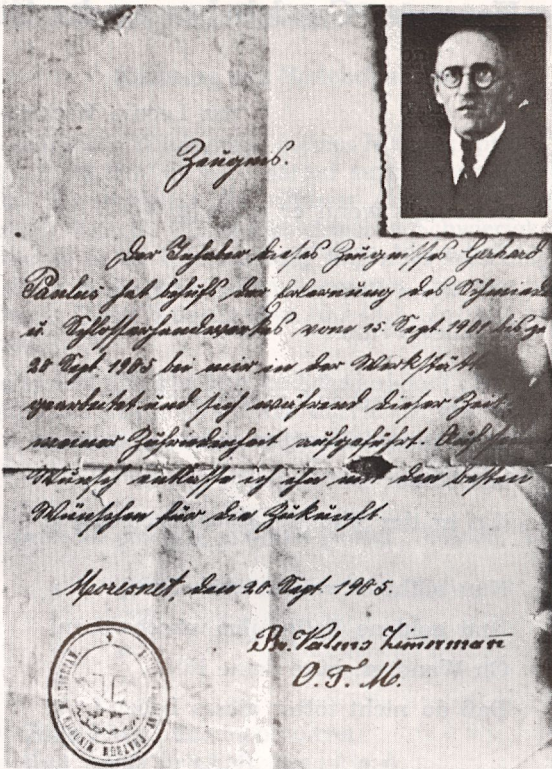 Zeugnis.
Der Inhaber dieses Zeugnisses Gerhard
Paulus hat behufs der Erlernung des Schmiede
u. Schlosserhandwerkes vom 15. Sept. 1901 bis zu
20 Sept. 1905 bei mir in der Werkstätte
gearbeitet und sich während dieser Zeit
meiner Zufriedenheit aufgeführt. Auf
Wunsch entlasse ich ihn mit den besten
Wünschen für die Zukunft.
Moresnet, den 20. Sept. 1905.
Br. Valens Zimermann
O. F. M.